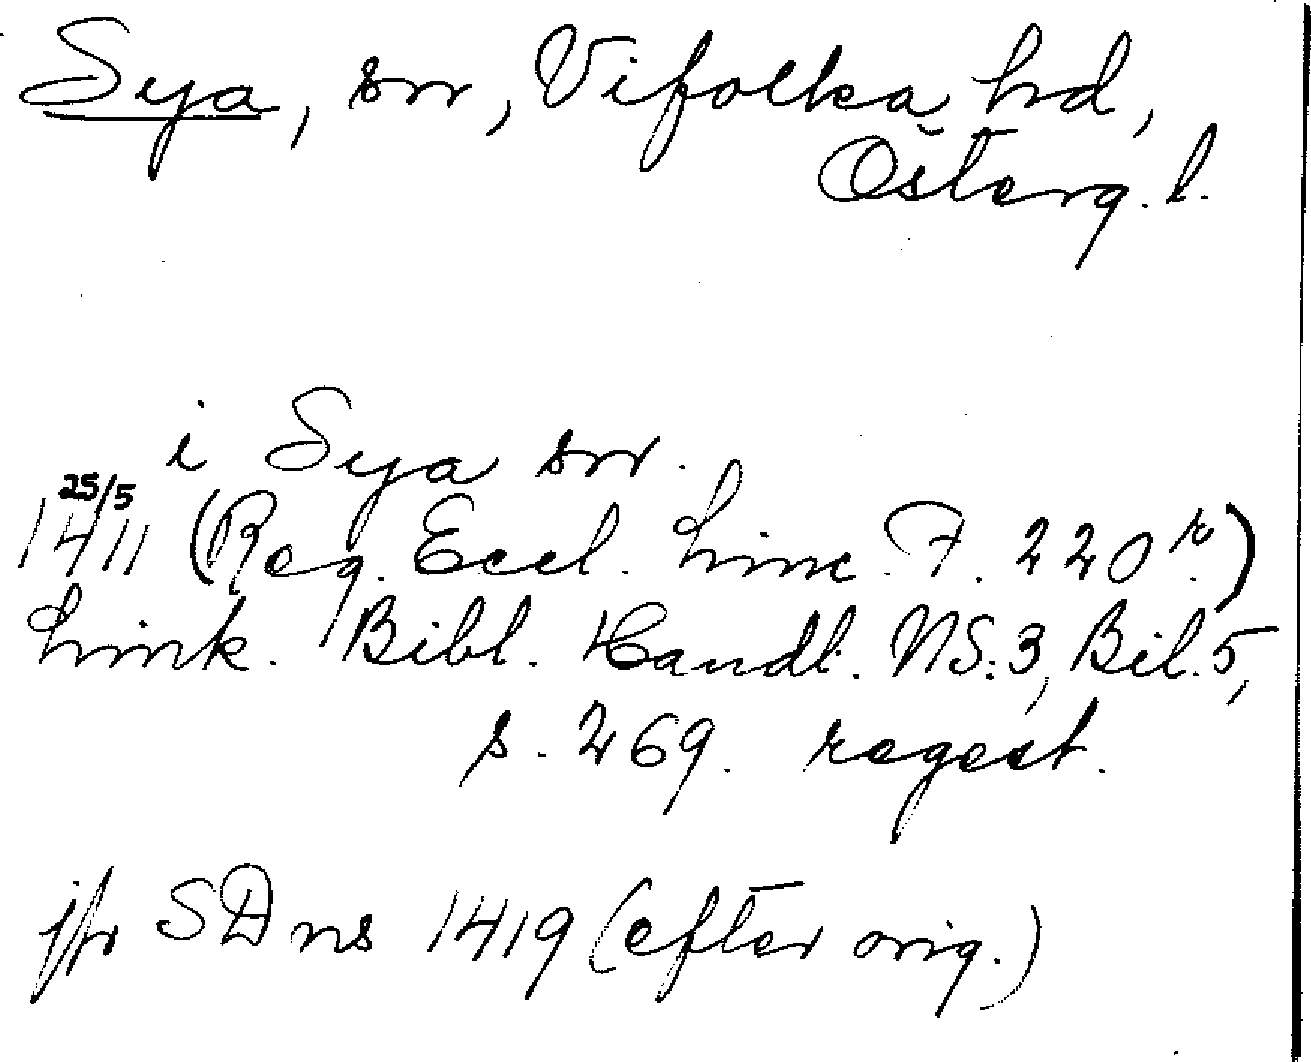 Sya, sn, Vifolka hd,
Österg. l.
i Sya sn.
25/5
1411 (Reg. Eccl. Linc. F. 220 r.)
Link. Bibl. Handl. NS:3, Bil. 5,
s. 269. regest.
jfr SD ns 1419 (efter orig.)